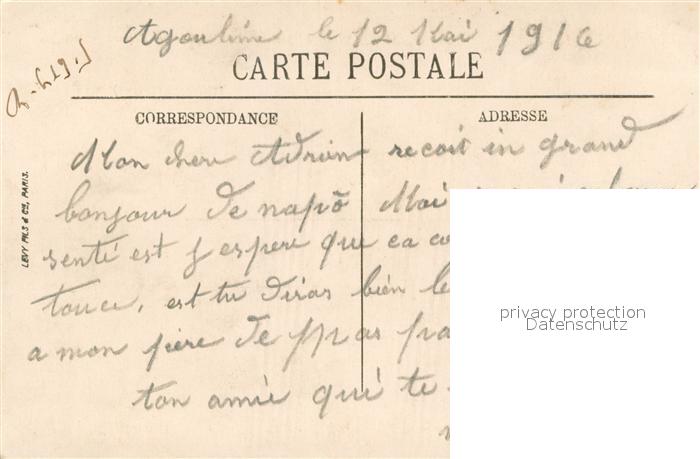 le 12 Mai 1916
CARTE POSTALE
CORRESPONDANCE
ADRESSE
LEVY FILS & CIE, PARIS.
Mon chere Adrien recoit in grand
bonjour de napō Moi
senté est j espere que ca
touce, est tu diras bien le
a mon piere de pas
ton amie qui te
privacy protection
Datenschutz